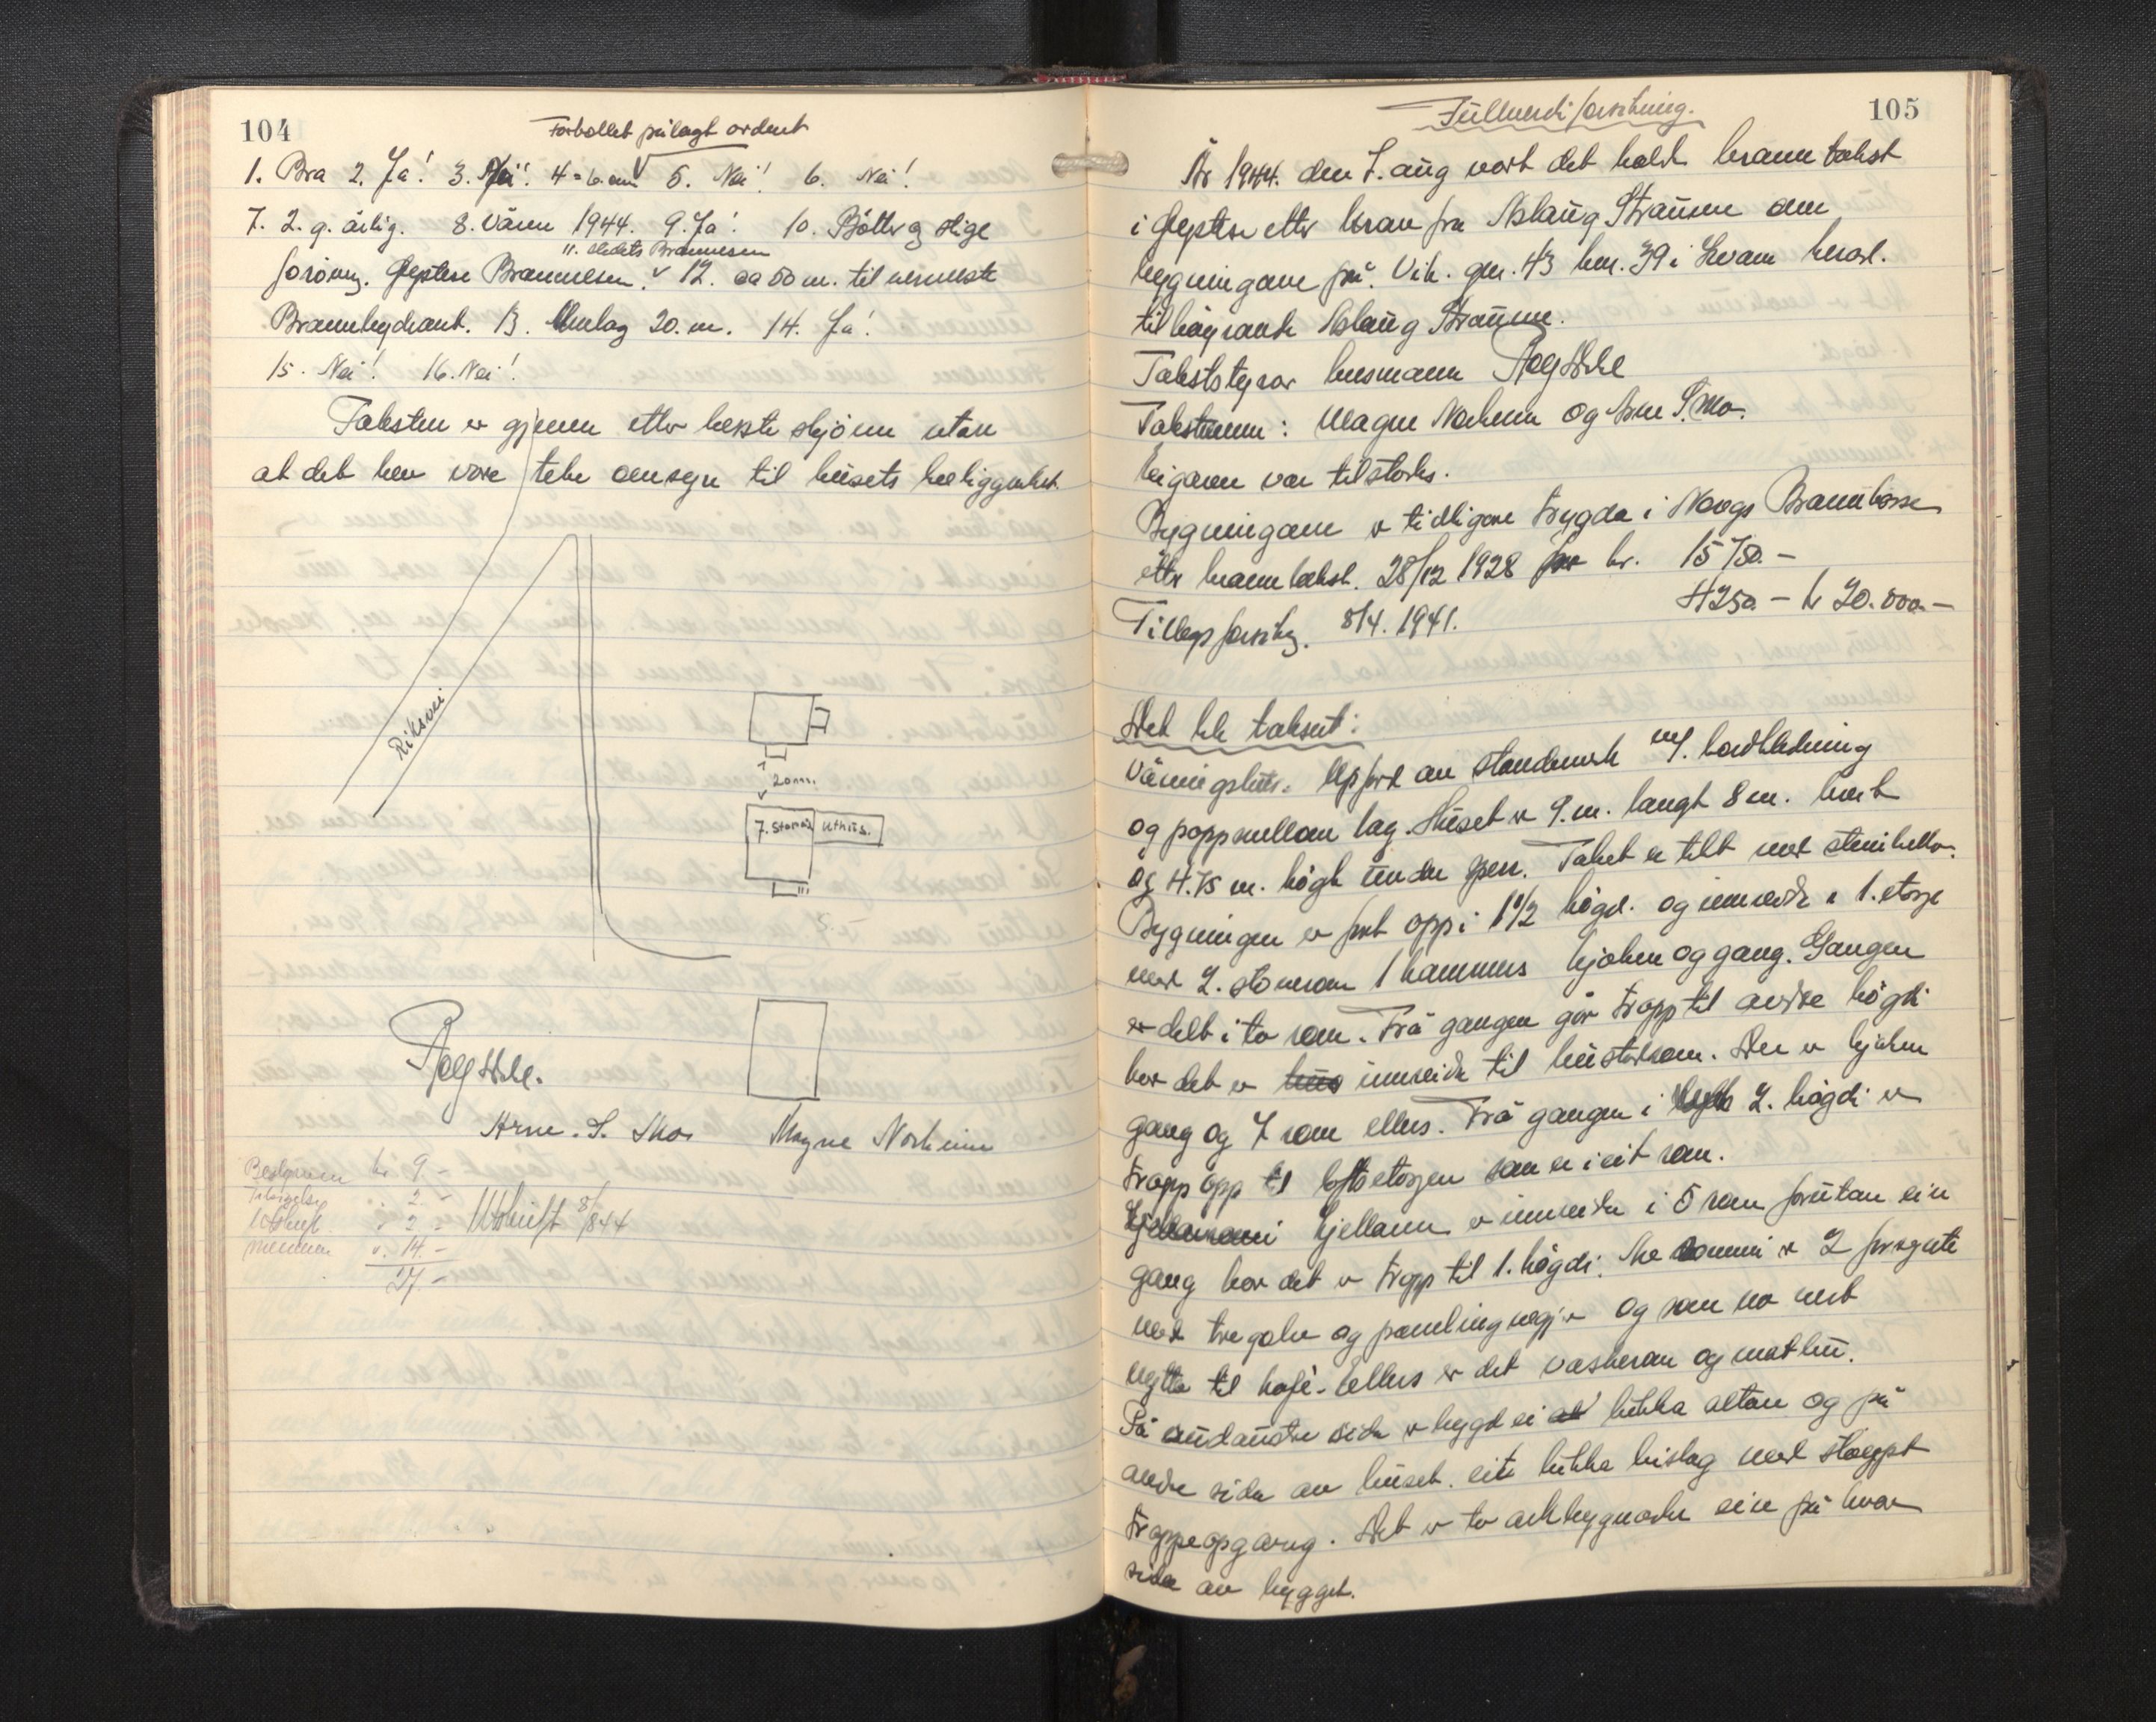 104
Forholdet pålagt ordent
1. Bra 2. Ja! 3. Nei! 4 = 6. cm 5. Nei! 6. Nei!
7. 2. g. årlig. 8. Våren 1944. 9. Ja! 10. Bøtter og stige
11. Stedets Brannvesen
forøvrig. Øystese Brannvesen. 12. ca 50 m. til nærmeste
Brannhydrant. 13. Umlag 20. m. 14. Ja!
15. Nei! 16. Nei!
Taksten er gjenom etter beste skjønn utan
at det hev vore teke omsyn til husets beliggenhet.
Riksvei
20 m.
7. Uthus.
Arne. S. Mo. Magne Norheim
kr 9 -
" 2 -
Utskrift " 2 - Utskrift 8/8 44
" 14. -
27. -
105
Fullverdi forsikring.
År 1944. den 7. aug vart det halde branntakst
i Øystese etter krav fra Aslaug Straume om
bygningane på. Vik. gnr. 43 bnr. 39 i Kvam herad.
tilhøyrande Aslaug Straume.
Takststyrar lensmann
Takstmenn: Magne Norheim og Arne S. Mo.
Eigaren var tilstades.
Bygningane er tidligare trygda i Norges Brannkasse
etter branntakst. 28/12 1928 for kr. 15 750. -
4250. - kr 20.000. -
Tilleggsforsikr. 8/4. 1941.
Det ble taksert:
Våningshus. Uppført av standverk m/. bordkledning
og pappmellom lag. Huset er 9. m. langt 8 m. bredt
og 4.75 m. høgt under gesi. Taket er tekt med steinheller.
Bygningen er ført opp i 1 1/2 høgd. og innreidd i 1. etasje
med 2. stoverom 1 kammers kjøken og gang. Gangen
er delt i to rom. Frå gangen går trapp til andre høgdi
hor det er innreidd til husstaterom. Der er kjøken
gang og 4 rom ellers. Frå gangen i 2. høgdi er
trapp opp til loftsetasjen som er i eit rom.
kjellaren er innreidd i 5 rom forutan ein
gang hor det er trapp til 1. høgdi. Av rommi er 2 forsynte
med tregolv og panelingvegjer og som no vert
nytta til kafé. Ellers er det vaskerom og matbu.
På sudaustre sida er bygd ei lukka altan og på
andre sida av huset. eit lukka bislag med støypt
trappeopgang. Det er to arkbygnader ein på kvar
sida av bygget.